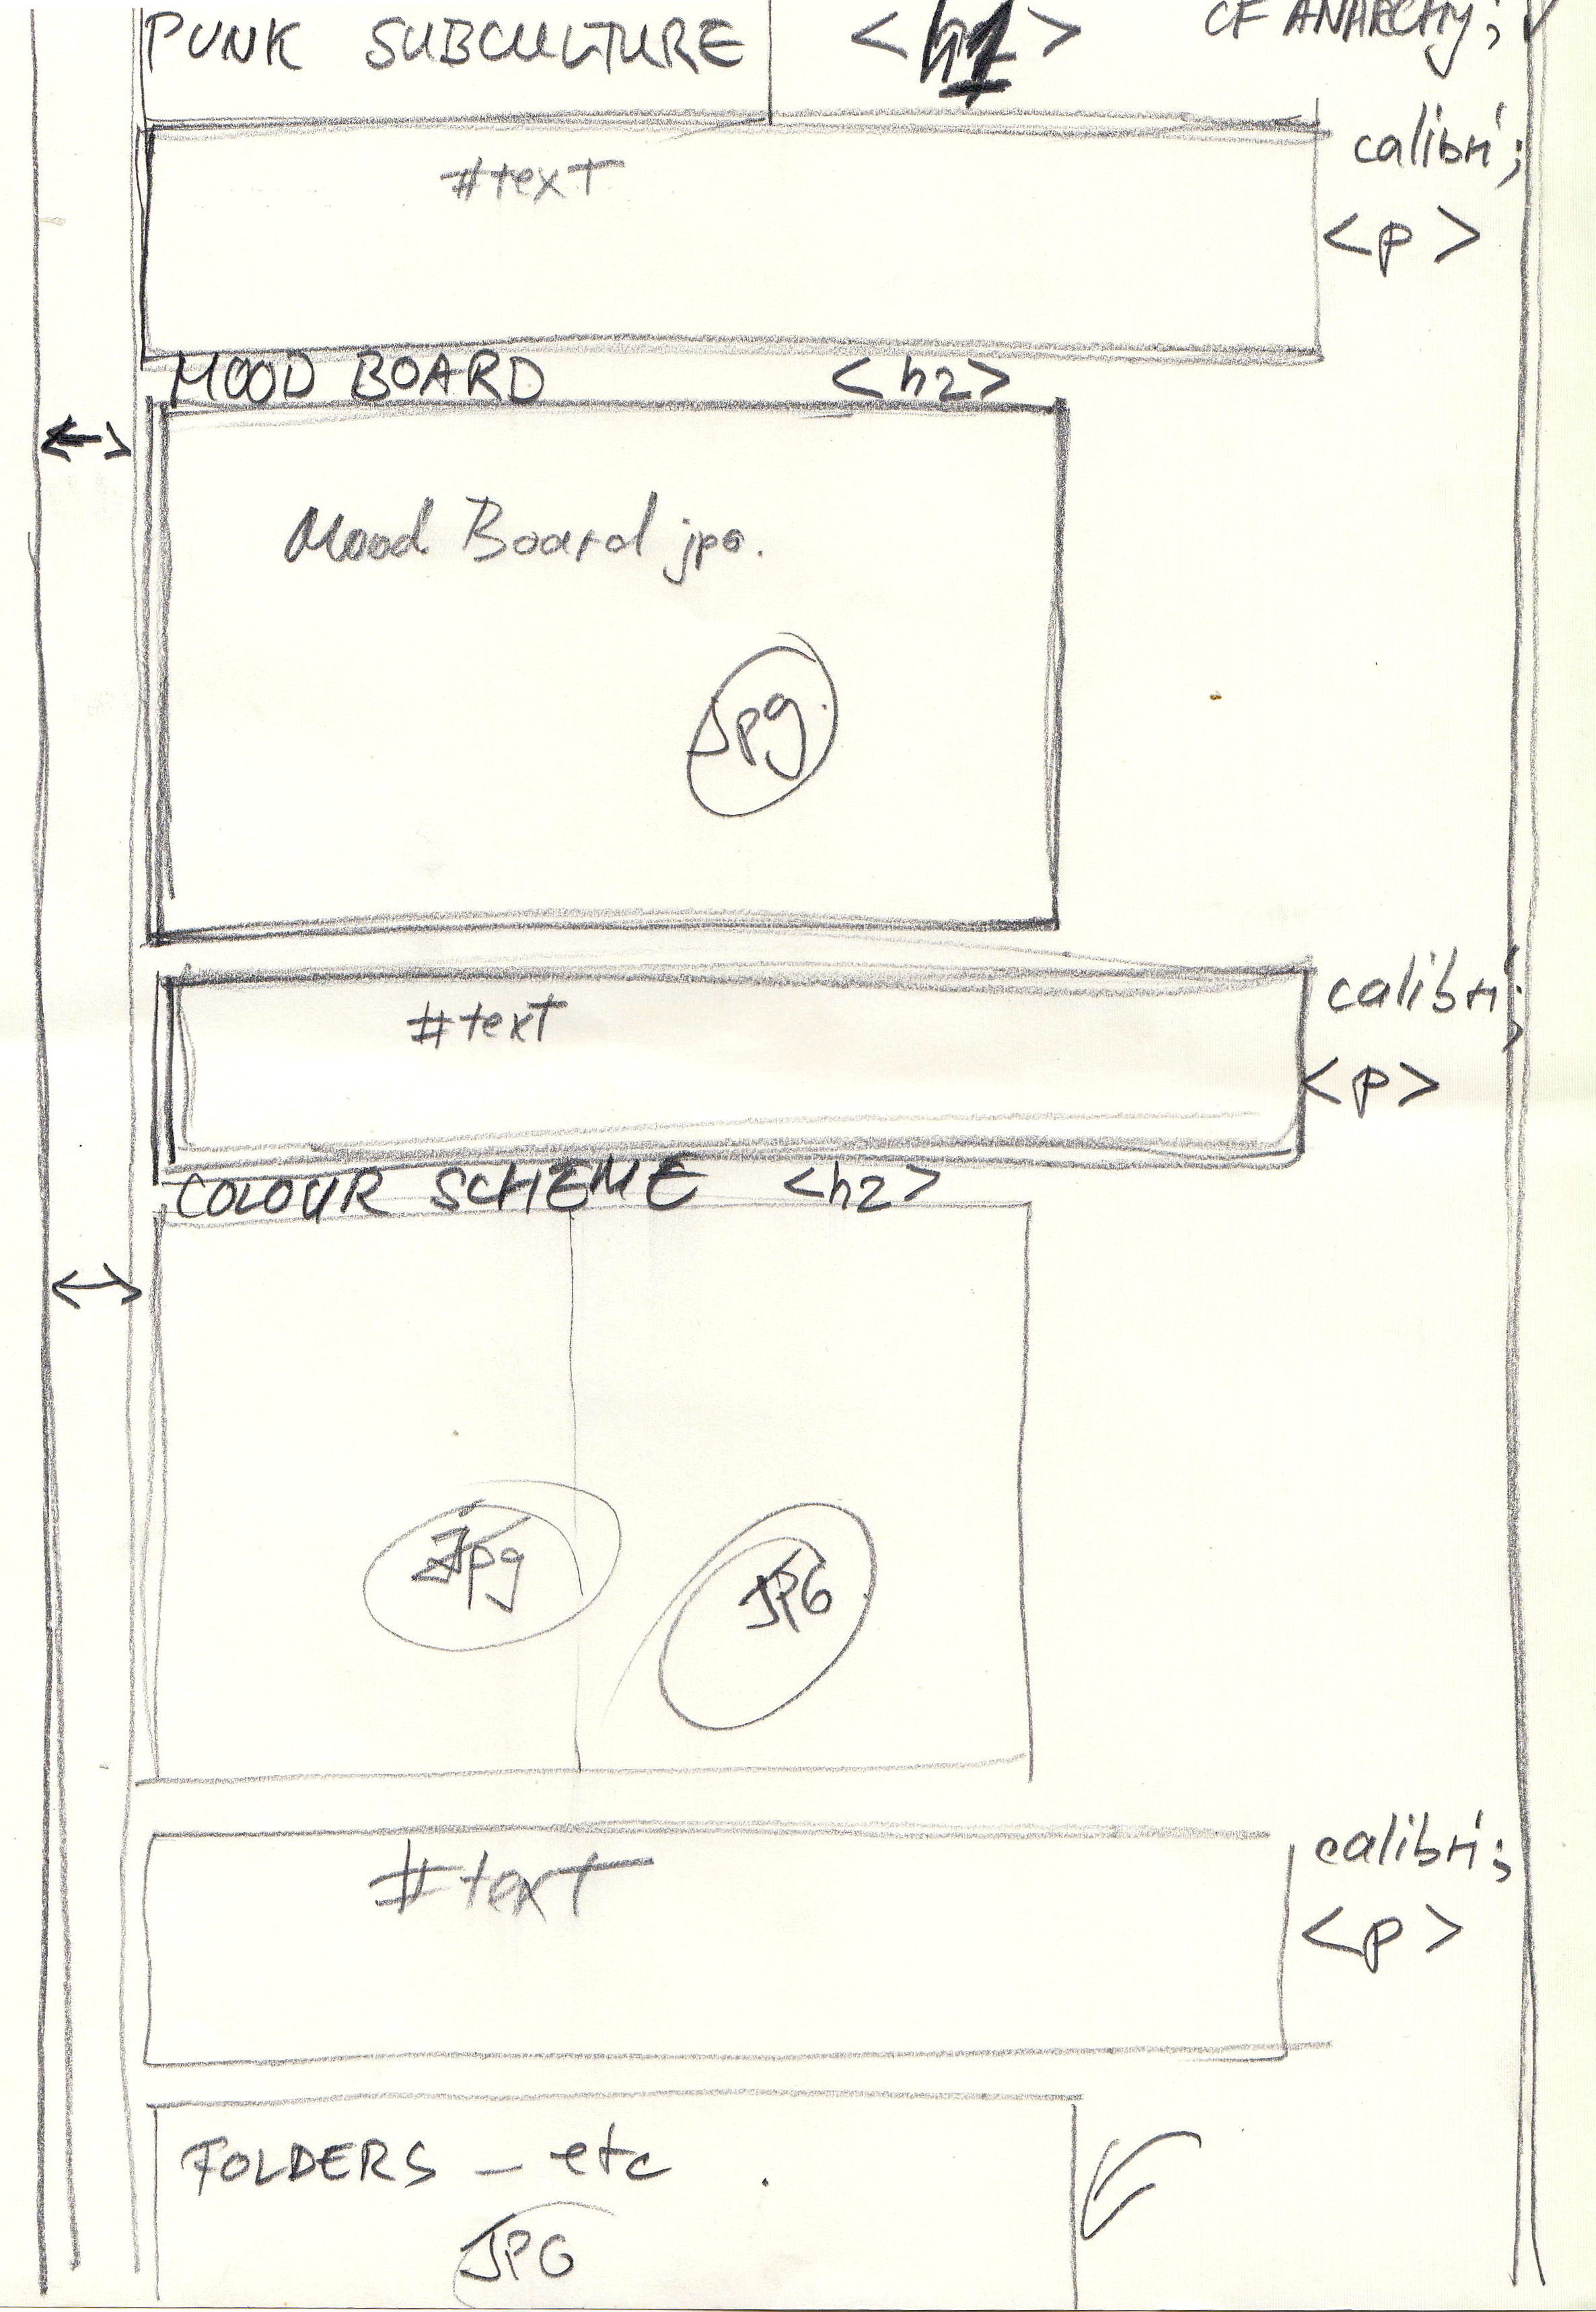 PUNK SUBCULTURE <h1> OF ANARCHY;
calibri;
#text
<p>
MOOD BOARD <h2>
Mood Board jpg.
Jpg.
#text calibri;
<p>
COLOUR SCHEME <h2>
Jpg JPG
#text calibri;
<p>
FOLDERS - etc.
JPG